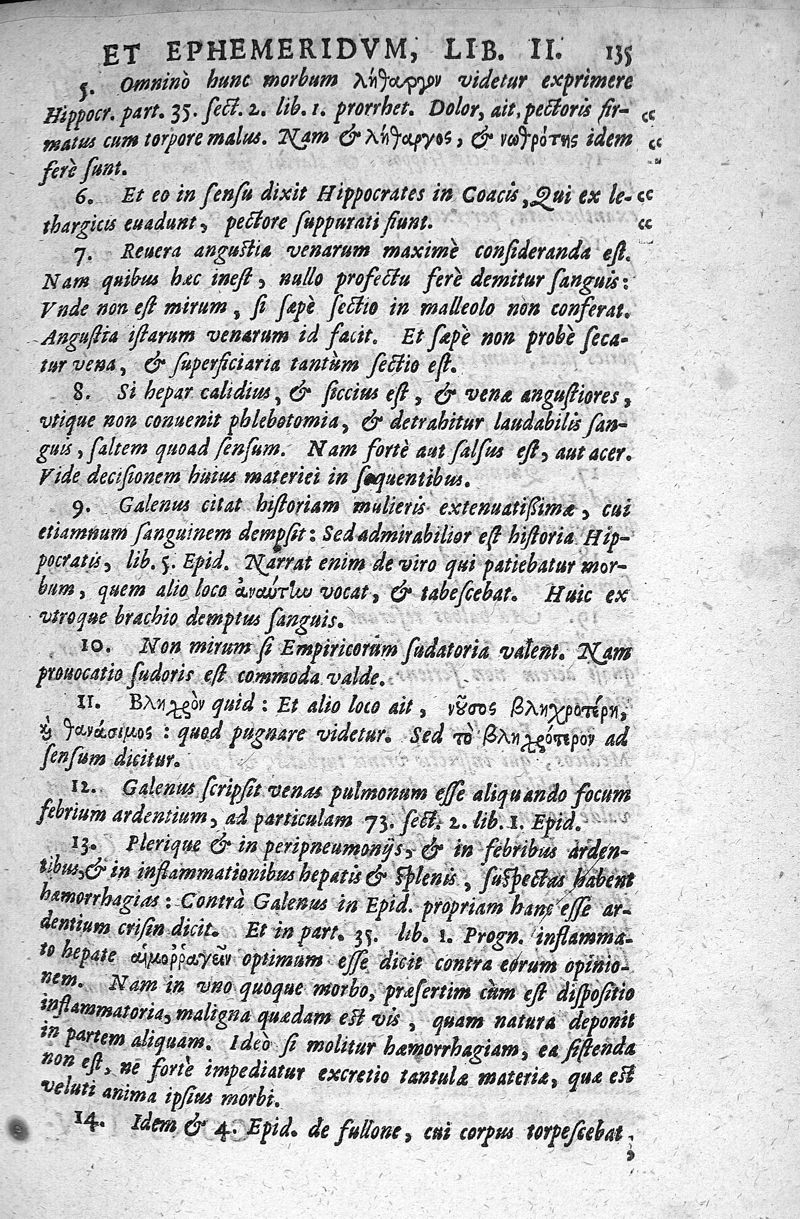 ET EPHEMERIDVM, LIB. II. 135
5. Omninò hunc morbum λήθαργον videtur exprimere
Hippocr. part. 35. ſect. 2. lib. 1. prorrhet. Dolor, ait, pectoris fir- “
matus cum torpore malus. Nam & λήθαργος, & νωθρότης idem “
ferè ſunt.
6. Et eo in ſenſu dixit Hippocrates in Coacis, Qui ex le- “
thargicis euadunt, pectore ſuppurati fiunt. “
7. Reuera angustia venarum maximè conſideranda eſt.
Nam quibus hæc inest, nullo profectu ferè demitur ſanguis:
Vnde non est mirum, ſi ſæpè ſectio in malleolo non conferat.
Anguſtia iſtarum venarum id facit. Et ſæpè non probè ſeca-
tur vena, & ſuperficiaria tantùm ſectio eſt.
8. Si hepar calidius, & ſiccius est, & venæ anguſtiores,
vtique non conuenit phlebotomia, & detrahitur laudabilis ſan-
guis, ſaltem quoad ſenſum. Nam fortè aut ſalſus est, aut acer.
Vide deciſionem huius materiei in ſequentibus.
9. Galenus citat hiſtoriam mulieris extenuatißimæ, cui
etiamnum ſanguinem dempſit: Sed admirabilior eſt hiſtoria Hip-
pocratis, lib. 5. Epid. Narrat enim de viro qui patiebatur mor-
bum, quem alio loco vocat, & tabeſcebat. Huic ex
vtroque brachio demptus ſanguis.
10. Non mirum ſi Empiricorum ſudatoria valent. Nam
prouocatio ſudoris est commoda valde.
11. Βληχρὸν quid: Et alio loco ait, νοῦσος βληχροτέρη,
ἢ θανάσιμος: quod pugnare videtur. Sed τὸ βληχρότερον ad
ſenſum dicitur.
12. Galenus ſcripſit venas pulmonum eſſe aliquando focum
febrium ardentium, ad particulam 73. ſect. 2. lib. 1. Epid.
13. Plerique & in peripneumonijs, & in febribus arden-
tibus, & in inflammationibus hepatis & ſplenis, ſuſpectas habent
hæmorrhagias: Contrà Galenus in Epid. propriam hanc eſſe ar-
dentium criſin dicit. Et in part. 35. lib. 1. Progn. inflamma-
to hepate αἱμοῤῥαγεῖν optimum eſſe dicit contra eorum opinio-
nem. Nam in vno quoque morbo, præſertim cùm est diſpoſitio
inflammatoria, maligna quædam est vis, quam natura deponit
in partem aliquam. Ideò ſi molitur hæmorrhagiam, ea ſiſtenda
non eſt, ne fortè impediatur excretio tantulæ materiæ, quæ est
veluti anima ipſius morbi.
14. Idem & 4. Epid. de fullone, cui corpus torpeſcebat,